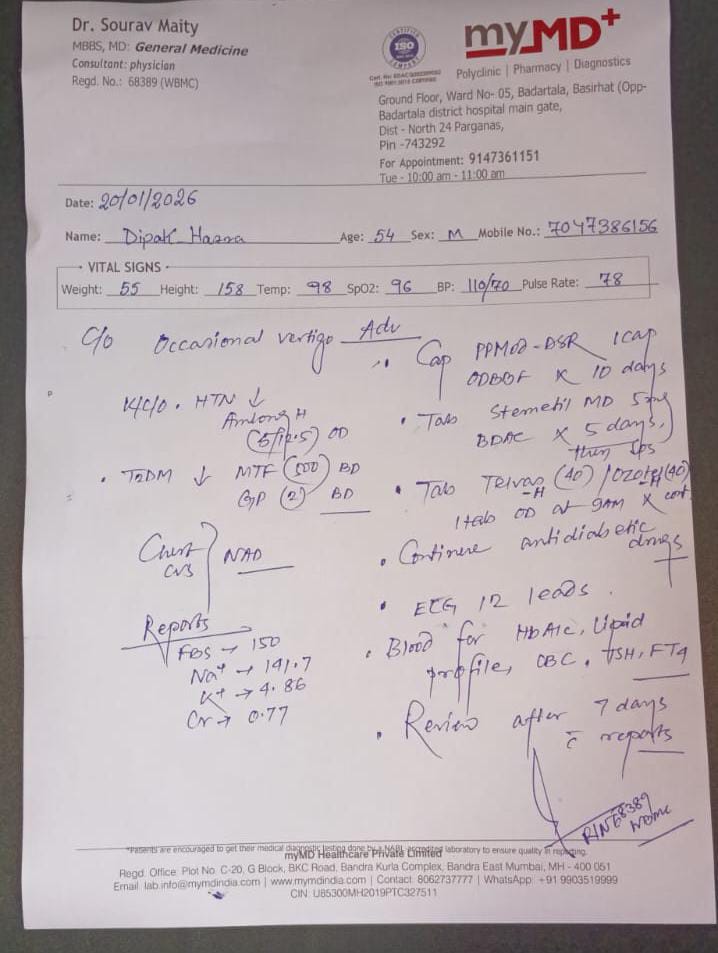 Dr. Sourav Maity
MBBS, MD: General Medicine
Consultant: physician
Regd. No.: 68389 (WBMC)
CERTIFIED
ISO
COMPANY
myMD+
Polyclinic | Pharmacy | Diagnostics
Ground Floor, Ward No- 05, Badartala, Basirhat (Opp-
Badartala district hospital main gate,
Dist - North 24 Parganas,
Pin -743292
For Appointment: 9147361151
Tue - 10:00 am - 11:00 am
Date: 20/01/2026
Name: Dipak Hazra Age: 54 Sex: M Mobile No.: 7047386156
VITAL SIGNS
Weight: 55 Height: 158 Temp: 98 SpO2: 96 BP: 110/70 Pulse Rate: 78
C/o Occasional vertigo
K/C/O . HTN ↓
H
(5/12.5) OD
. T2DM ↓ MTF (500) BD
GP (2) BD
Chest
CVS
NAD
Reports
FBS → 150
Na+ → 141.7
K+ → 4.86
Cr → 0.77
Adv
Cap PPM DSR 1cap
ODBBF X 10 days
. Tab Stemetil MD 5mg
BDAC X 5 days,
then SOS
. Tab Telvas (40) / Ozotel (40)
-H -H
1tab OD at 9AM X cont.
. Continue antidiabetic
drugs
. ECG 12 leads.
. Blood for HbA1c, Lipid
profile, CBC, TSH, FT4
. Review after 7 days
c̄ reports
RN 68389
WBMC
*Patients are encouraged to get their medical diagnostic testing done by a NABL accredited laboratory to ensure quality in reporting.
myMD Healthcare Private Limited
Regd. Office: Plot No. C-20, G Block, BKC Road, Bandra Kurla Complex, Bandra East Mumbai, MH - 400 051
Email: lab.info@mymdindia.com | www.mymdindia.com | Contact: 8062737777 | WhatsApp: +91 9903519999
CIN: U85300MH2019PTC327511